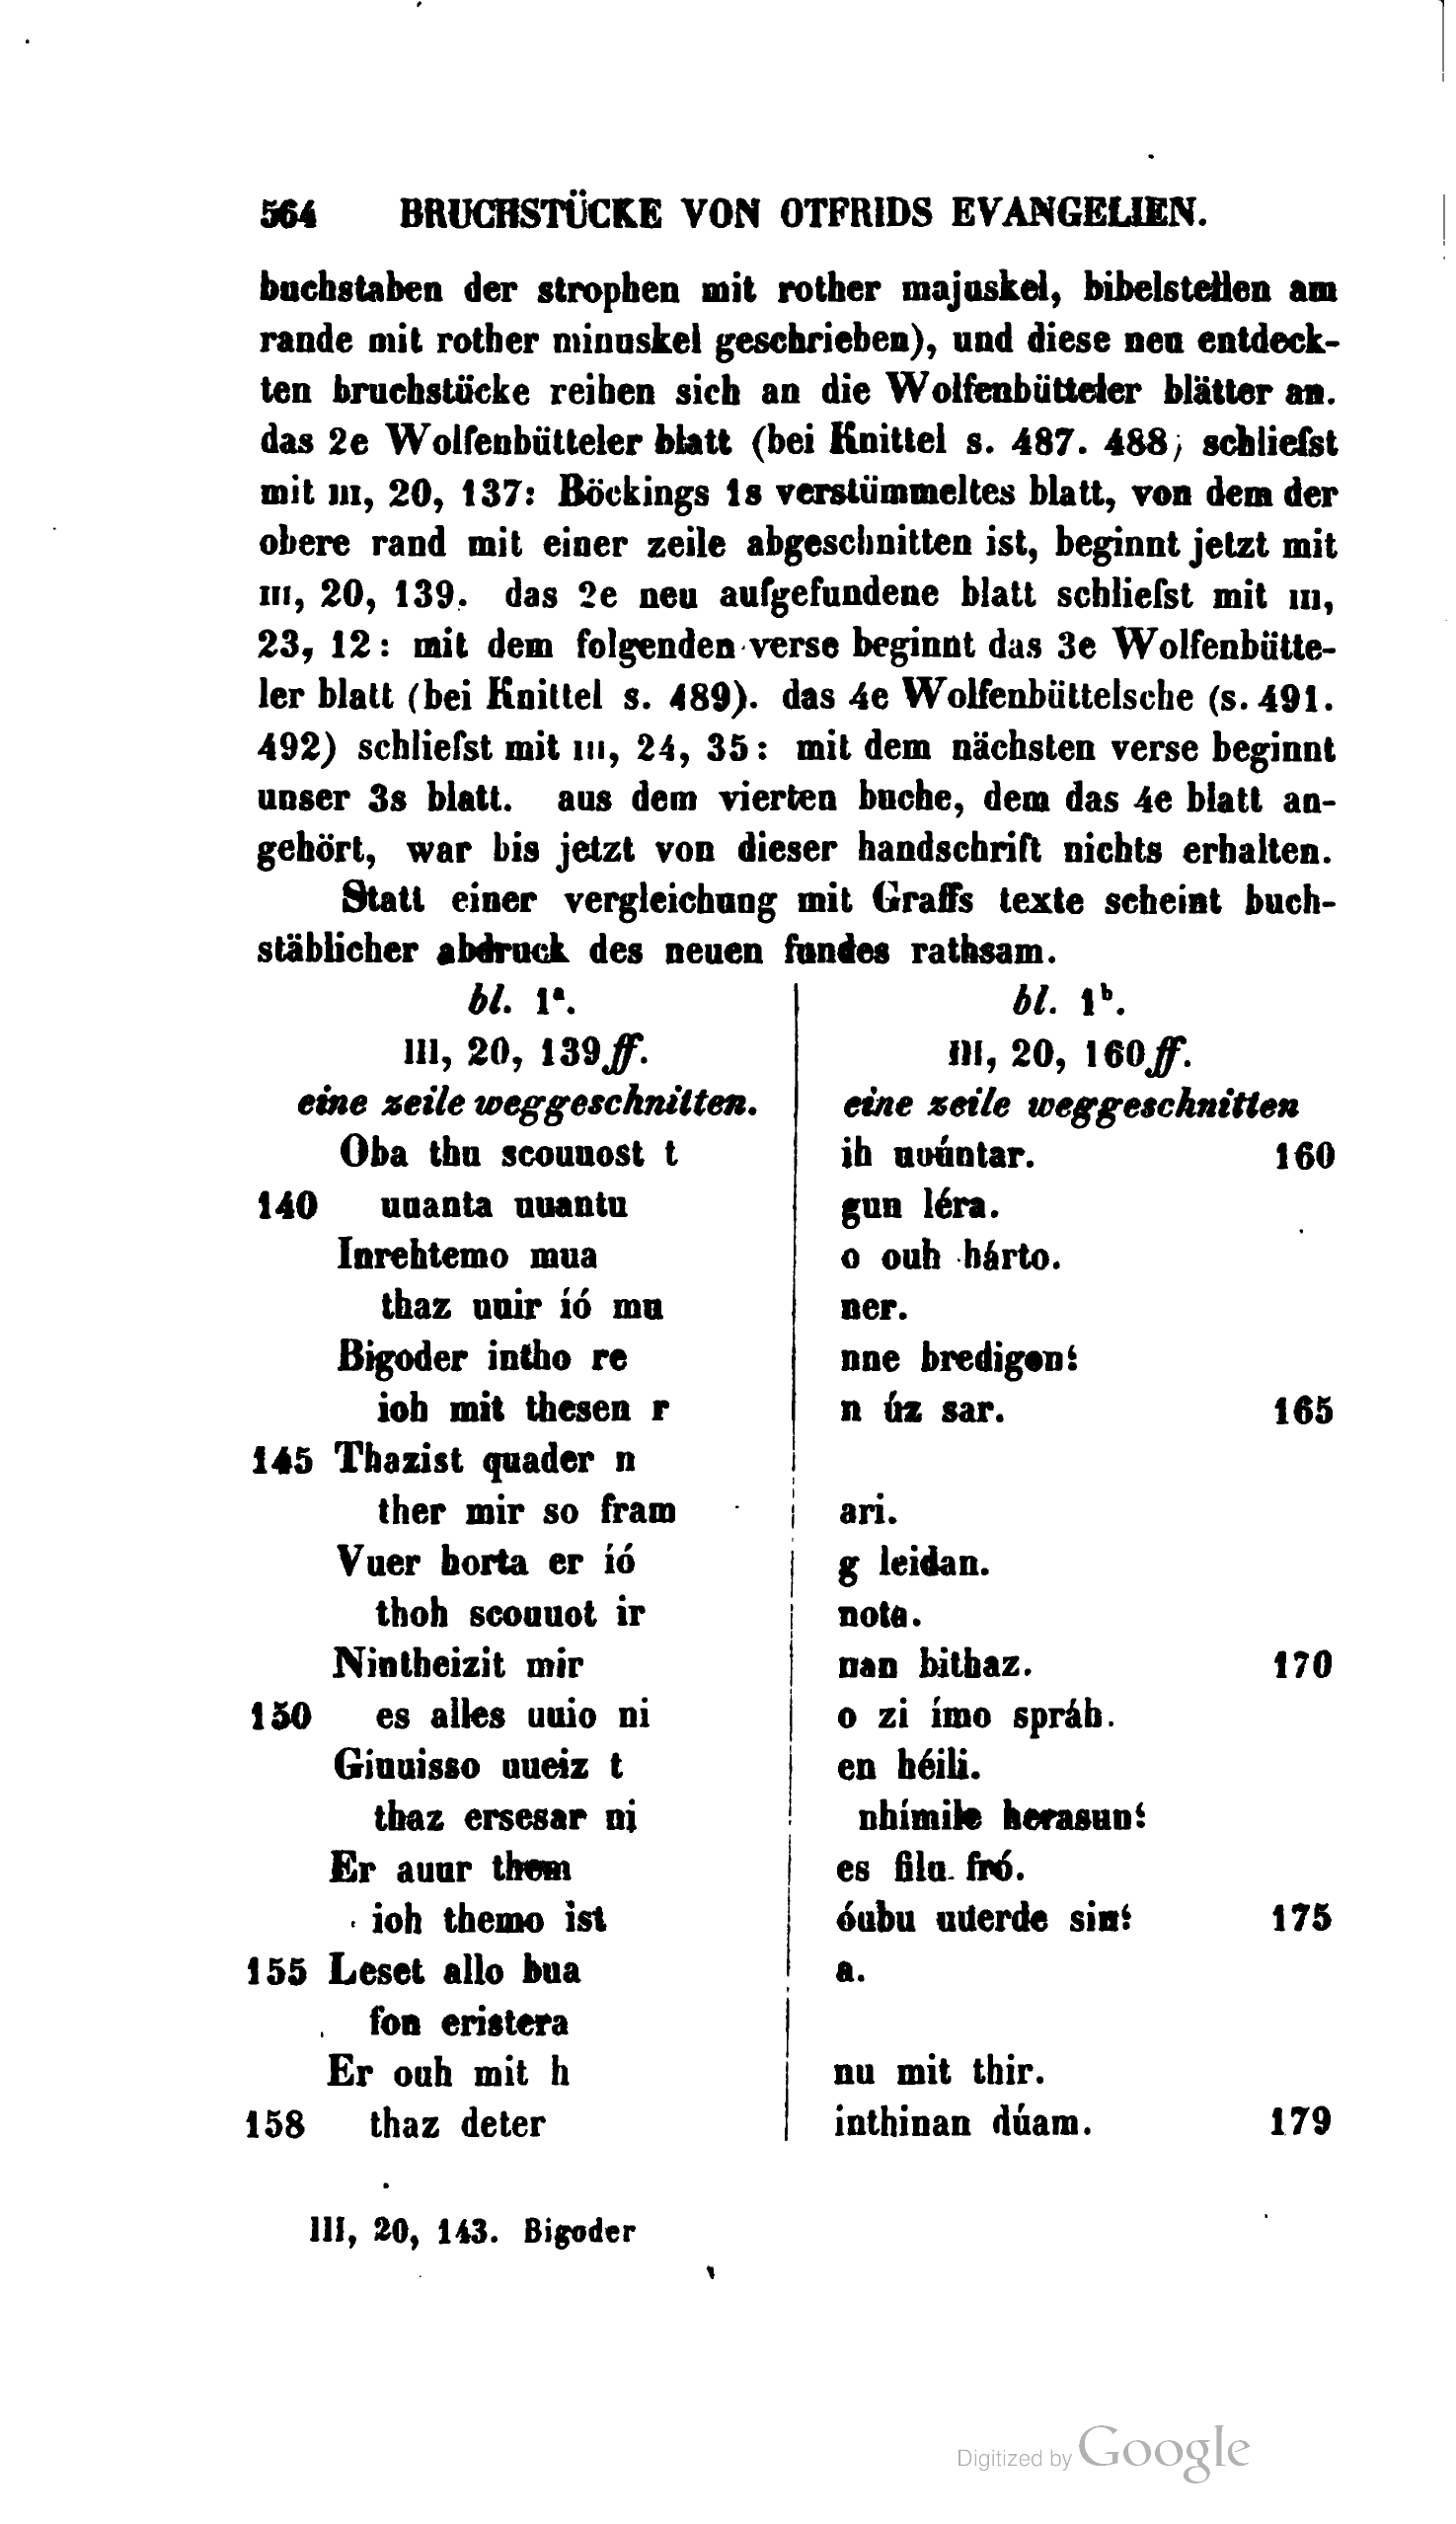 564 BRUCHSTÜCKE VON OTFRIDS EVANGELIEN.
buchstaben der strophen mit rother majuskel, bibelstellen am
rande mit rother minuskel geschrieben), und diese neu entdeck-
ten bruchstücke reihen sich an die Wolfenbütteler blätter an.
das 2e Wolfenbütteler blatt (bei Knittel s. 487. 488; schliefst
mit III, 20, 137: Böckings 1s verstümmeltes blatt, von dem der
obere rand mit einer zeile abgeschnitten ist, beginnt jetzt mit
III, 20, 139. das 2e neu aufgefundene blatt schliefst mit III,
23, 12: mit dem folgenden verse beginnt das 3e Wolfenbütte-
ler blatt (bei Knittel s. 489). das 4e Wolfenbüttelsche (s. 491.
492) schliefst mit III, 24, 35: mit dem nächsten verse beginnt
unser 3s blatt. aus dem vierten buche, dem das 4e blatt an-
gehört, war bis jetzt von dieser handschrift nichts erhalten.
Statt einer vergleichung mit Graffs texte scheint buch-
stäblicher abdruck des neuen fundes rathsam.
bl. 1ª.
III, 20, 139ff.
eine zeile weggeschnitten.
Oba thu scouuost t
140 uuanta uuantu
Inrehtemo mua
thaz uuir íó mu
Bigoder intho re
ioh mit thesen r
145 Thazist quader n
ther mir so fram
Vuer horta er íó
thoh scouuot ir
Nintheizit mir
150 es alles uuio ni
Giuuisso uueiz t
thaz ersesar ni
Er auur them
ioh themo ist
155 Leset allo bua
fon eristera
Er ouh mit h
158 thaz deter
bl. 1ᵇ.
III, 20, 160ff.
eine zeile weggeschnitten
ih uuúntar. 160
gun léra.
o ouh hárto.
ner.
nne bredigon⸵
n úz sar. 165
ari.
g leidan.
nota.
nan bithaz. 170
o zi ímo spráh.
en héili.
nhímile herasun⸵
es filu fró.
óubu uuerde sin⸵ 175
a.
nu mit thir.
inthinan dúam. 179
III, 20, 143. Bigoder
Digitized by Google